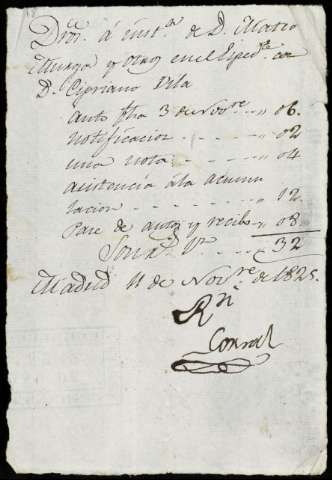 Dros. á insta. de D. Mateo
Murga y otros en el Expedte. con
D. Cipriano Vila
Auto fha 3 de Novre. „ 06.
notificacion . . . . . . „ 02
una nota . . . . . . . „ 04
asistencia á la acumu
lacion . . . . . . . . „ 12
Pase de autos y recibo „ 08
Son rs. vn. 32
Madrid 11 de Novre. de 1825.
Rvi.
Corral